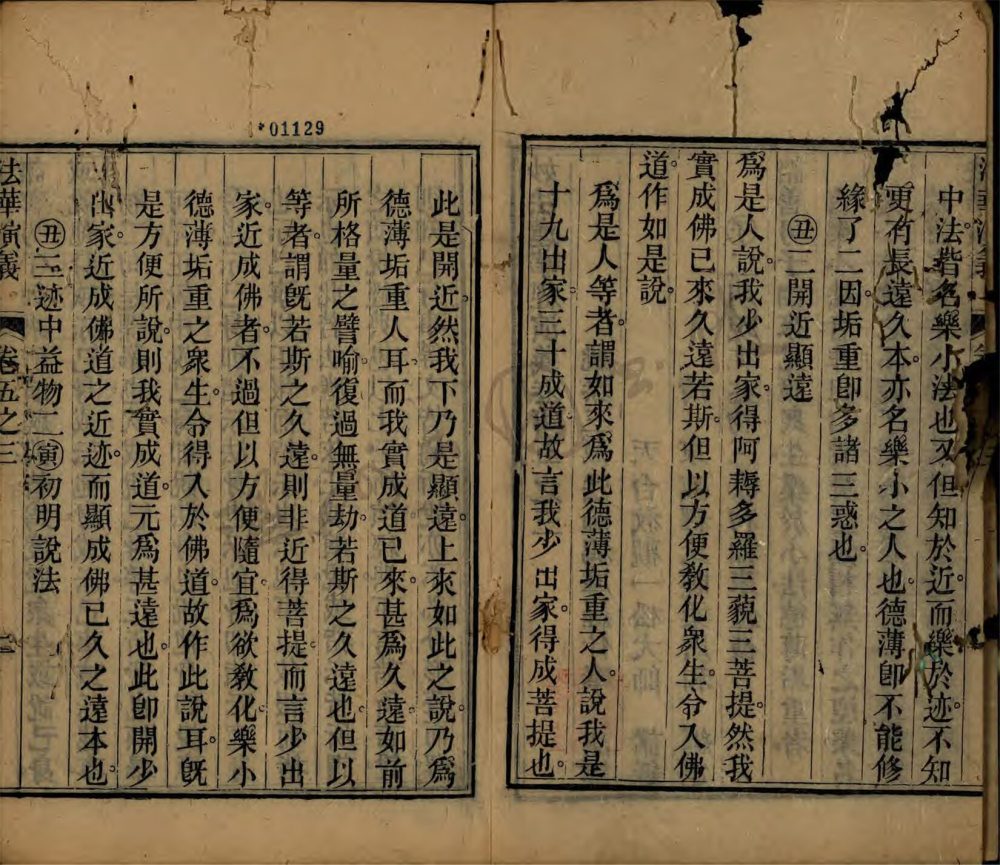 中法皆名樂小法也又但知於近而樂於迹不知
更有長遠久本亦名樂小之人也德薄卽不能修
緣了二因垢重卽多諸三惑也
丑二開近顯遠
爲是人說我少出家得阿耨多羅三藐三菩提然我
實成佛已來久遠若斯但以方便敎化衆生令入佛
道作如是說
爲是人等者謂如來爲此德薄垢重之人說我是
十九出家三十成道故言我少出家得成菩提也
01129
此是開近然我下乃是顯遠上來如此之說乃爲
德薄垢重人耳而我實成道已來甚爲久遠如前
所格量之譬喻復過無量劫若斯之久遠也但以
等者謂旣若斯之久遠則非近得菩提而言少出
家近成佛者不過但以方便隨宜爲欲敎化樂小
德薄垢重之衆生令得入於佛道故作此說耳旣
是方便所說則我實成道元爲甚遠也此卽開少
出家近成佛道之近迹而顯成佛已久之遠本也
丑三迹中益物二寅初明說法
法華演義 卷五之三